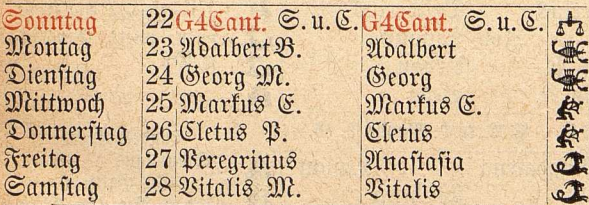 Sonntag 22 G4Cant. S. u. C. G4Cant. S. u. C.
Montag 23 Adalbert B. Adalbert
Dienstag 24 Georg M. Georg
Mittwoch 25 Markus E. Markus E.
Donnerstag 26 Cletus P. Cletus
Freitag 27 Peregrinus Anastasia
Samstag 28 Vitalis M. Vitalis